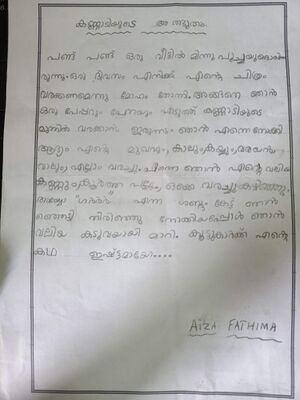 കണ്ണാടിയുടെ അത്ഭുതം
പണ്ട് പണ്ട് ഒരു വീട്ടിൽ മിന്നു പൂച്ചയുണ്ടായി
രുന്നു. ഒരു ദിവസം എനിക്ക് എന്റെ ചിത്രം
വരക്കണമെന്നു മോഹം തോന്നി. അങ്ങനെ ഞാൻ
ഒരു പേപ്പറും പേനയും എടുത്ത് കണ്ണാടിയുടെ
മുന്നിൽ വരക്കാൻ ഇരുന്നു. ഞാൻ എന്നെ നോക്കി
ആദ്യം എന്റെ മുഖവും, കാലും, കയ്യും,
വാലും, എല്ലാം വരച്ചു. പിന്നെ ഞാൻ എന്റെ വലിയ
കണ്ണും, കൂർത്ത പല്ലും, ഒക്കെ വരച്ചു കഴിഞ്ഞു.
"ഗർർർ" എന്ന ശബ്ദം കേട്ട് ഞാൻ
ഞെട്ടി തിരിഞ്ഞു നോക്കിയപ്പോൾ ഞാൻ
വലിയ കടുവയായി മാറി. കൂട്ടുകാർക്ക് എന്റെ
കഥ ഇഷ്ട്ടമായോ....
AIZA FATHIMA